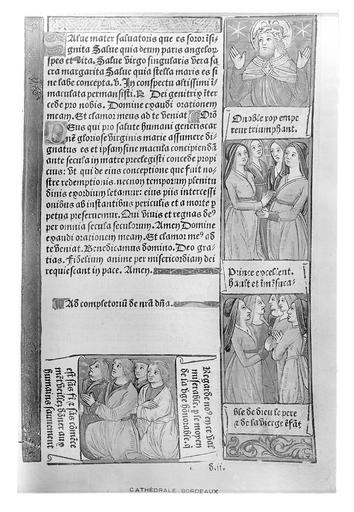 Salue mater saluatoris que es soror isi-
gnita Salue quia deum paris angeloꝝ
spes et vita. Salue virgo singularis vera sa
cra margarita Salue quia stella maris es si
ne labe concepta. v̄. In conspectu altissimi i
maculata permansisti. ꝶ Dei genitrix iter
cede pro nobis. Domine exaudi orationem
meam. Et clamor meus ad te veniat Orō
Deus qui pro salute humani generis car
nē gloriose virginis marie assumere di
gnatus es et ipsam sine macula concipiendā
ante secula in matre preelegisti concede propi
cius: vt qui de eius conceptione que fuit no-
stre redemptionis. nec non temporum plenitu
dinis exordium letamur: eius piis intercessi
onibus ab instantibus periculis et a morte p
petua preseruemur. Qui viuis et regnas de9
per omnia secula seculorum. Amen Domine
exaudi orationem meam. Et clamor me9 ad
te veniat. Benedicamus domino. Deo gra-
tias. Fidelium anime per misericordiam dei
requiescant in pace. Amen.
Ad completoriū de nrā dnā.
O noble roy empe
reur triumphant.
Prince excellent.
hault et
de dieu le pere
de la vierge
Regarde
miserable
de la vge honorable
humains
d. ii.
CATHÉDRALE BORDEAUX